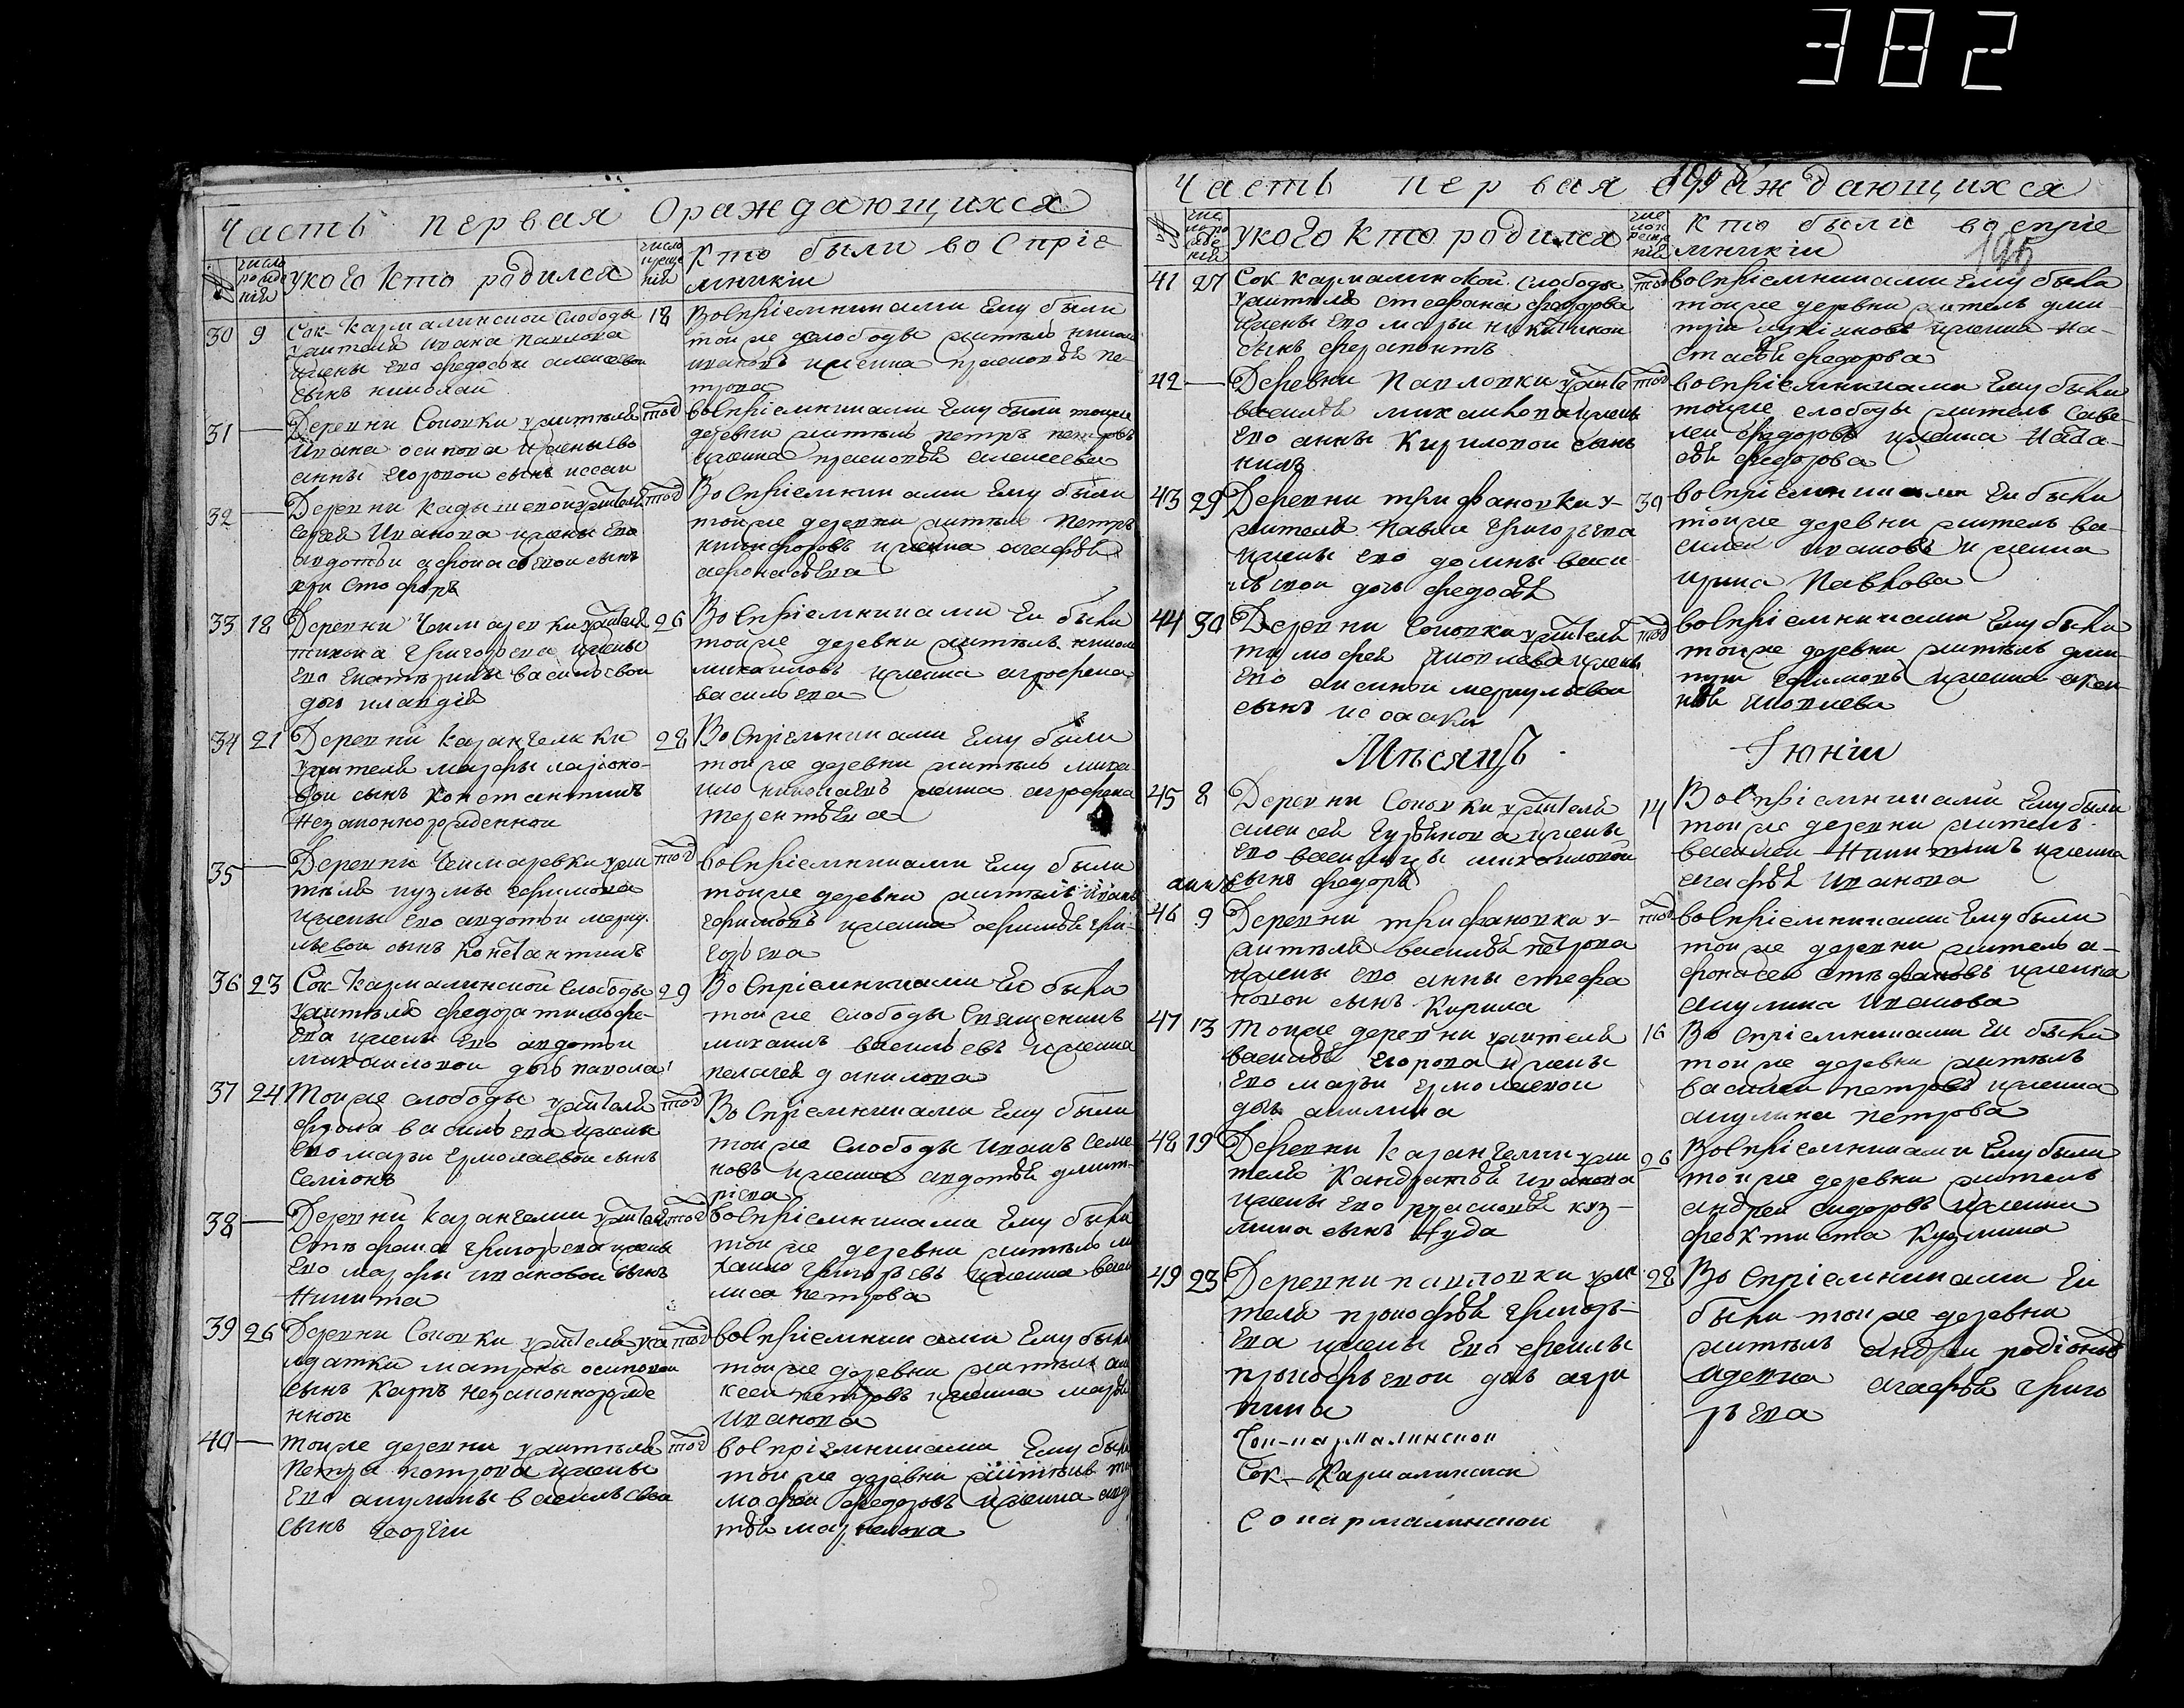 382
Часть первая Ораждающихся
№
число рожде ній
укого кто родился
число креще ній
Кто были воспріе
мникіи
30 9 Сок Кармалинской Слободы
жителя Ивана Павлова
ижены Его федосьи алексевои
сынъ николаи
18 Воспріемниками Ему были
тоиже слободы житель никола
ивановъ ижена прасковья пе-
трова
31 — Деревни Соковки жителя
Ивана осипова ижены Его
анны Егоровои сынъ исаак
тог воспріемниками Ему были тоиже
деревни житель петръ петровъ
ижена прасковья алексеева
32 — Деревни Кадышевой жителя
сергея Иванова ижены Его
авдотьи афонасьевои сынъ
хри стофоръ
тог Воспріемниками Ему были
тоиже деревни житель Петръ
никифоровъ ижена агафья
афонасьева
33 18 Деревни Чекмаревки жителя
тихона григорьева ижены
Его Екатерины васильевои
дочь клавдія
26 Воспріемниками Еи были
тоиже деревни житель никола
михаиловъ ижена аграфена
васильева
34 21 Деревни Казангелики
жителя марфы марково-
вои сынъ Константинъ
Незаконнорожденнои
28 Воспріемниками Ему были
тоиже деревни житель миха-
ило николаевъ ижена аграфена
терентьева
35 — Деревни Чекмаревки жи
теля кузмы ефимова
ижены Его авдотьи мерку-
льевои сынъ Константинъ
тог воспріемниками Ему были
тоиже деревни житель иванъ
ефимовъ ижена афимья гри-
горьева
36 23 Сок Кармалинской Слободы
жителя федора тимофе-
ева ижены Его авдотьи
михаиловои дочь павола
29 Воспріемниками Еи были
тоиже слободы Священникъ
михаилъ васильевъ ижена
пелагея данилова
37 24 Тоиже слободы жителя
фрола васильева ижены
Его марьи Ермолаевои сынъ
Семіонъ
тог Воспріемниками Ему были
тоиже Слободы иванъ Семе
новъ ижена авдотья дмит-
ріева
38 — Деревни Казангелики жителя
Степана григорьева ижены
Его марфы ивановои сынъ
Никита
тог воспріемниками Ему были
тоиже деревни житель ми
хаило григорьевъ ижена васи
лиса петрова
39 26 Деревни Соковки жительства
лдатки матроны осиповои
сынъ Карпъ незаконнорожде
ннои
тог воспріемниками Ему были
тоиже деревни житель але
ксеи петровъ ижена марья
иванова
40 — тоиже деревни жителя
Петра петрова ижены
Его акулины васильевои
сынъ георгіи
тог воспріемниками Ему были
тоиже деревни житель ти
мофеи федоровъ ижена авдо
тья маркелова
Часть первая Ораждающихся
195
№
чис ло ро жде ній
укого кто родился
чис ло креще ній
кто были воспріе
мникіи
41 27 Сок кармалинской слободы
жителя стефана федорова
ижены Его марьи никитинои
сынъ ферапонтъ
тог воспріемниками Ему были
тоиже деревни житель дми-
трій ижена На-
стасья федорова
42 — Деревни Павловки жителя
василья михаилова ижены
Его анны Кириловои сынъ
нилъ
тог воспріемниками Ему были
тоиже слободы житель Саве-
леи федоровъ ижена
федорова
43 29 Деревни трифановки ж-
жителя павла григорьева
ижены Его домны васи
льевои дочь федосья
30 воспріемниками Еи были
тоиже деревни житель ва-
силеи ивановъ и жена
ирина Павлова
44 30 Деревни Соковки жителя
тимофея Яковлева ижены
Его аксиньи меркульевои
сынъ исааки
тог воспріемниками Ему были
тоиже деревни житель дми-
трии Ефимовъ ижена аксе-
нья яковлева
Мѣсяцъ Іюніи
45 8 Деревни Соковки жителя
алексея ижены
Его василисы михаиловои
сынъ федоръ
14 Воспріемниками Ему были
тоиже деревни житель
василеи Никитинъ ижена
агафья иванова
46 9 Деревни трифановки ж-
жителя василья петрова
ижены Его анны стефа
новои сынъ Кирила
тог воспріемниками Ему были
тоиже деревни житель а-
фонасеи стефановъ ижена
акулина иванова
47 13 тоиже деревни жителя
василья Егорова ижены
Его марьи Ермолаевои
дочь акилина
16 Воспріемниками Еи были
тоиже деревни житель
василеи петровъ ижена
акулина петрова
48 19 Деревни Казангелки жи
теля Кандратья иванова
ижены Его прасковья куз-
мина сынъ Иуда
26 Воспріемниками Ему были
тоиже деревни житель
андреи сидоровъ ижена
феоктиста Кузмина
49 23 Деревни павловки жи
теля прокофья григорь-
ева ижены Его феклы
прокофьевои дочь агри
пина
28 Воспріемниками Еи
были тоиже деревни
житель андреи родіоновъ
идевка агафья григо
рьева
Сок-кармалинскои
Сок-Кармалинскои
Сокармалинскои